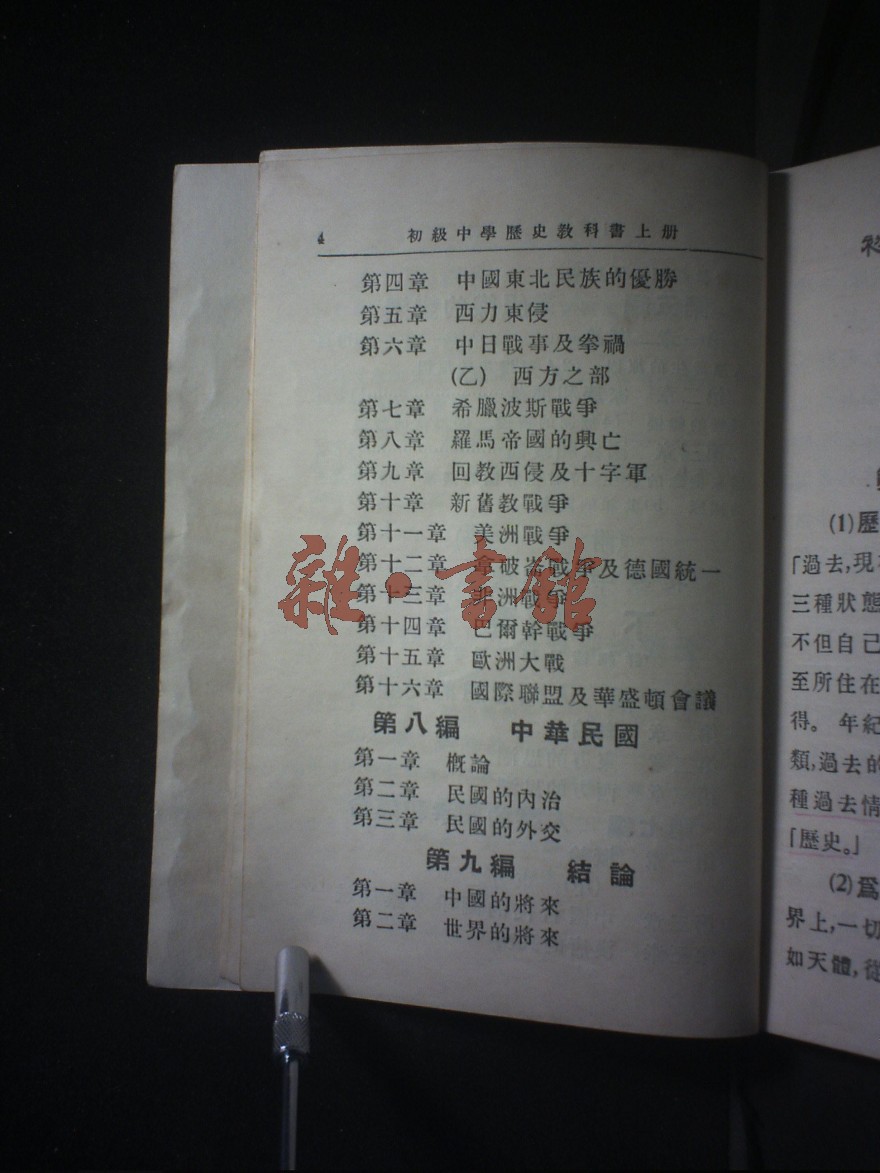 4 初級中學歷史教科書上册
第四章 中國東北民族的優勝
第五章 西力東侵
第六章 中日戰事及拳禍
(乙) 西方之部
第七章 希臘波斯戰爭
第八章 羅馬帝國的興亡
第九章 回教西侵及十字軍
第十章 新舊教戰爭
第十一章 美洲戰爭
第十二章 拿破崙戰爭及德國統一
第十三章 非洲戰爭
第十四章 巴爾幹戰爭
第十五章 歐洲大戰
第十六章 國際聯盟及華盛頓會議
第八編 中華民國
第一章 概論
第二章 民國的內治
第三章 民國的外交
第九編 結論
第一章 中國的將來
第二章 世界的將來
雜·書館
(1)歷
「過去,現
三種狀態
不但自己
至所住在
得。年紀
類,過去的
種過去情
「歷史。」
(2)爲
界上,一切
如天體,從